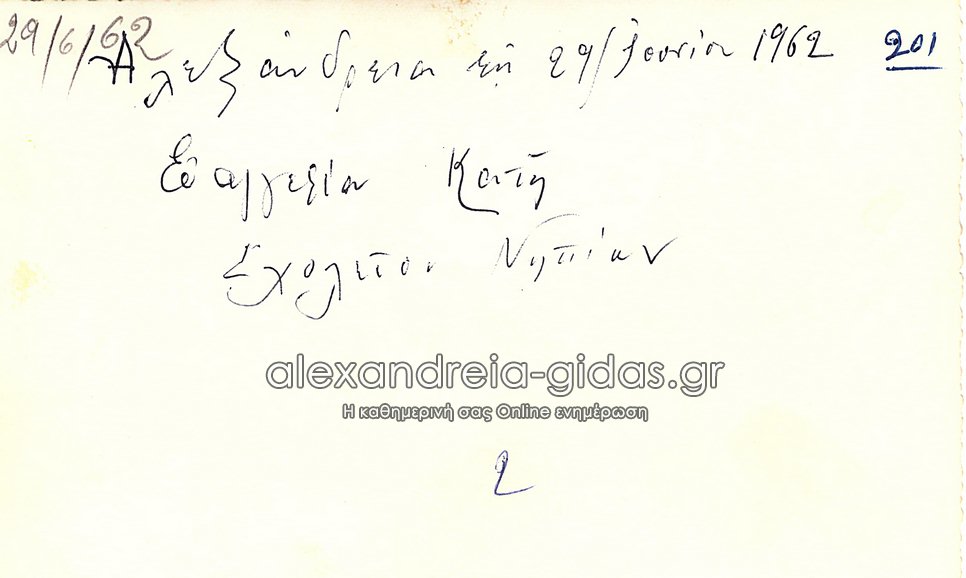 29/6/62
Ἀλεξάνδρεια τῇ 29/Ἰουνίου 1962 201
Εὐαγγελία Κατῆ
Σχολεῖον Νηπίων
alexandreia-gidas.gr
Η καθημερινή σας Online ενημέρωση
2